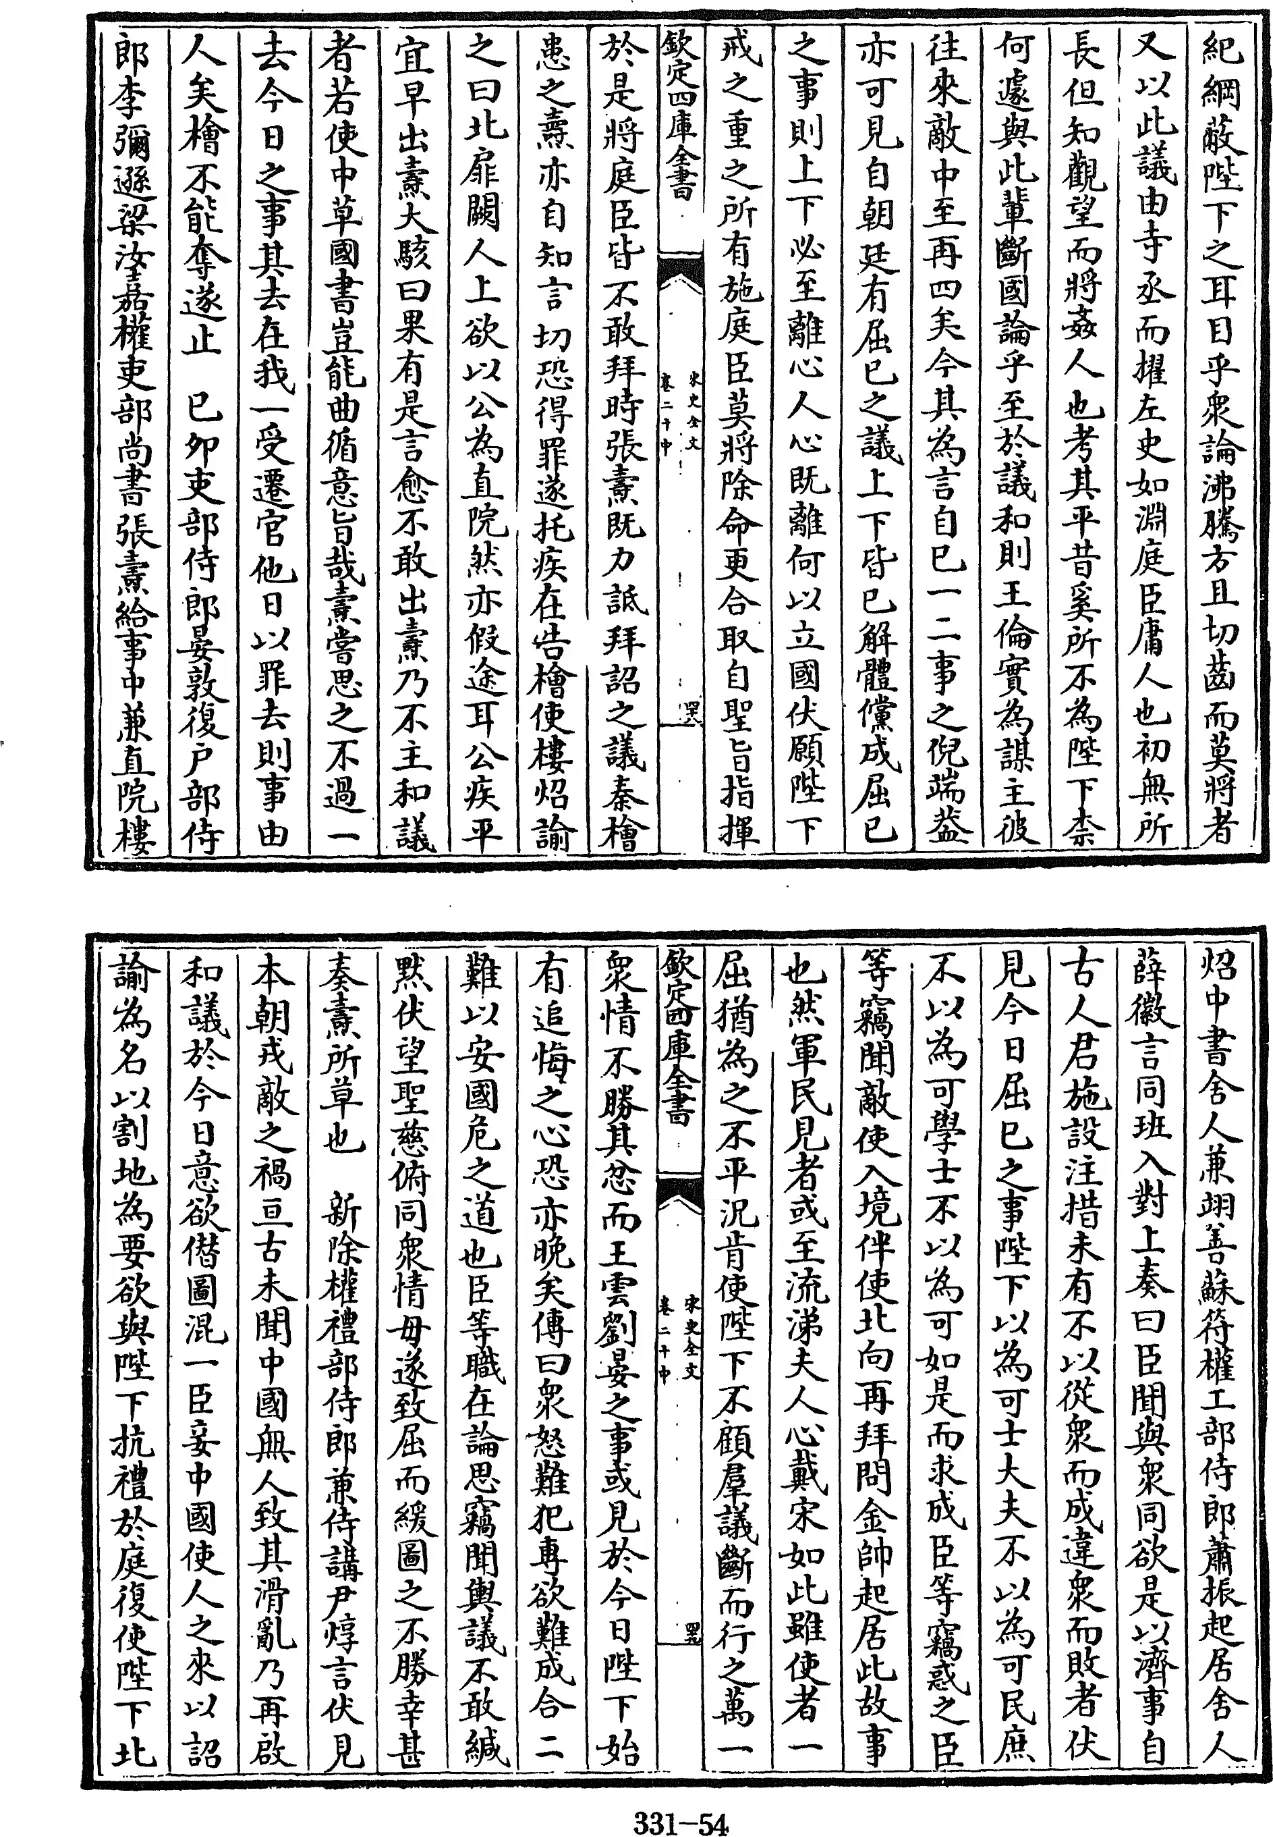 紀綱蔽陛下之耳目乎衆論沸騰方且切齒而莫將者
又以此議由寺丞而擢左史如淵庭臣庸人也初無所
長但知觀望而將姦人也考其平昔奚所不為陛下柰
何遽與此輩斷國論乎至於議和則王倫實為謀主彼
往來敵中至再四矣今其為言自已一二事之倪端葢
亦可見自朝廷有屈已之議上下皆已解體儻成屈已
之事則上下必至離心人心既離何以立國伏願陛下
戒之重之所有施庭臣莫將除命更合取自聖旨指揮
欽定四庫全書
宋史全文
卷二十中
四八
於是將庭臣皆不敢拜時張燾既力詆拜詔之議秦檜
患之燾亦自知言切恐得罪遂托疾在告檜使樓炤諭
之曰北扉闕人上欲以公為直院然亦假途耳公疾平
宜早出燾大駭曰果有是言愈不敢出燾乃不主和議
者若使中草國書豈能曲循意旨哉燾嘗思之不過一
去今日之事其去在我一受遷官他日以罪去則事由
人矣檜不能奪遂止　已卯吏部侍郎晏敦復户部侍
郎李彌遜梁汝嘉權吏部尚書張燾給事中兼直院樓
炤中書舍人兼翊善蘇符權工部侍郎蕭振起居舍人
薛徽言同班入對上奏曰臣聞與衆同欲是以濟事自
古人君施設注措未有不以從衆而成違衆而敗者伏
見今日屈已之事陛下以為可士大夫不以為可民庶
不以為可學士不以為可如是而求成臣等竊惑之臣
等竊聞敵使入境伴使北向再拜問金帥起居此故事
也然軍民見者或至流涕夫人心戴宋如此雖使者一
屈猶為之不平況肯使陛下不顧羣議斷而行之萬一
欽定四庫全書
宋史全文
卷二十中
四九
衆情不勝其忿而王雲劉晏之事或見於今日陛下始
有追悔之心恐亦晚矣傳曰衆怒難犯專欲難成合二
難以安國危之道也臣等職在論思竊聞輿議不敢緘
默伏望聖慈俯同衆情毋遂致屈而緩圖之不勝幸甚
奏燾所草也　新除權禮部侍郎兼侍講尹焞言伏見
本朝戎敵之禍亘古未聞中國無人致其滑亂乃再啟
和議於今日意欲僭圖混一臣妾中國使人之來以詔
諭為名以割地為要欲與陛下抗禮於庭復使陛下北
331-54